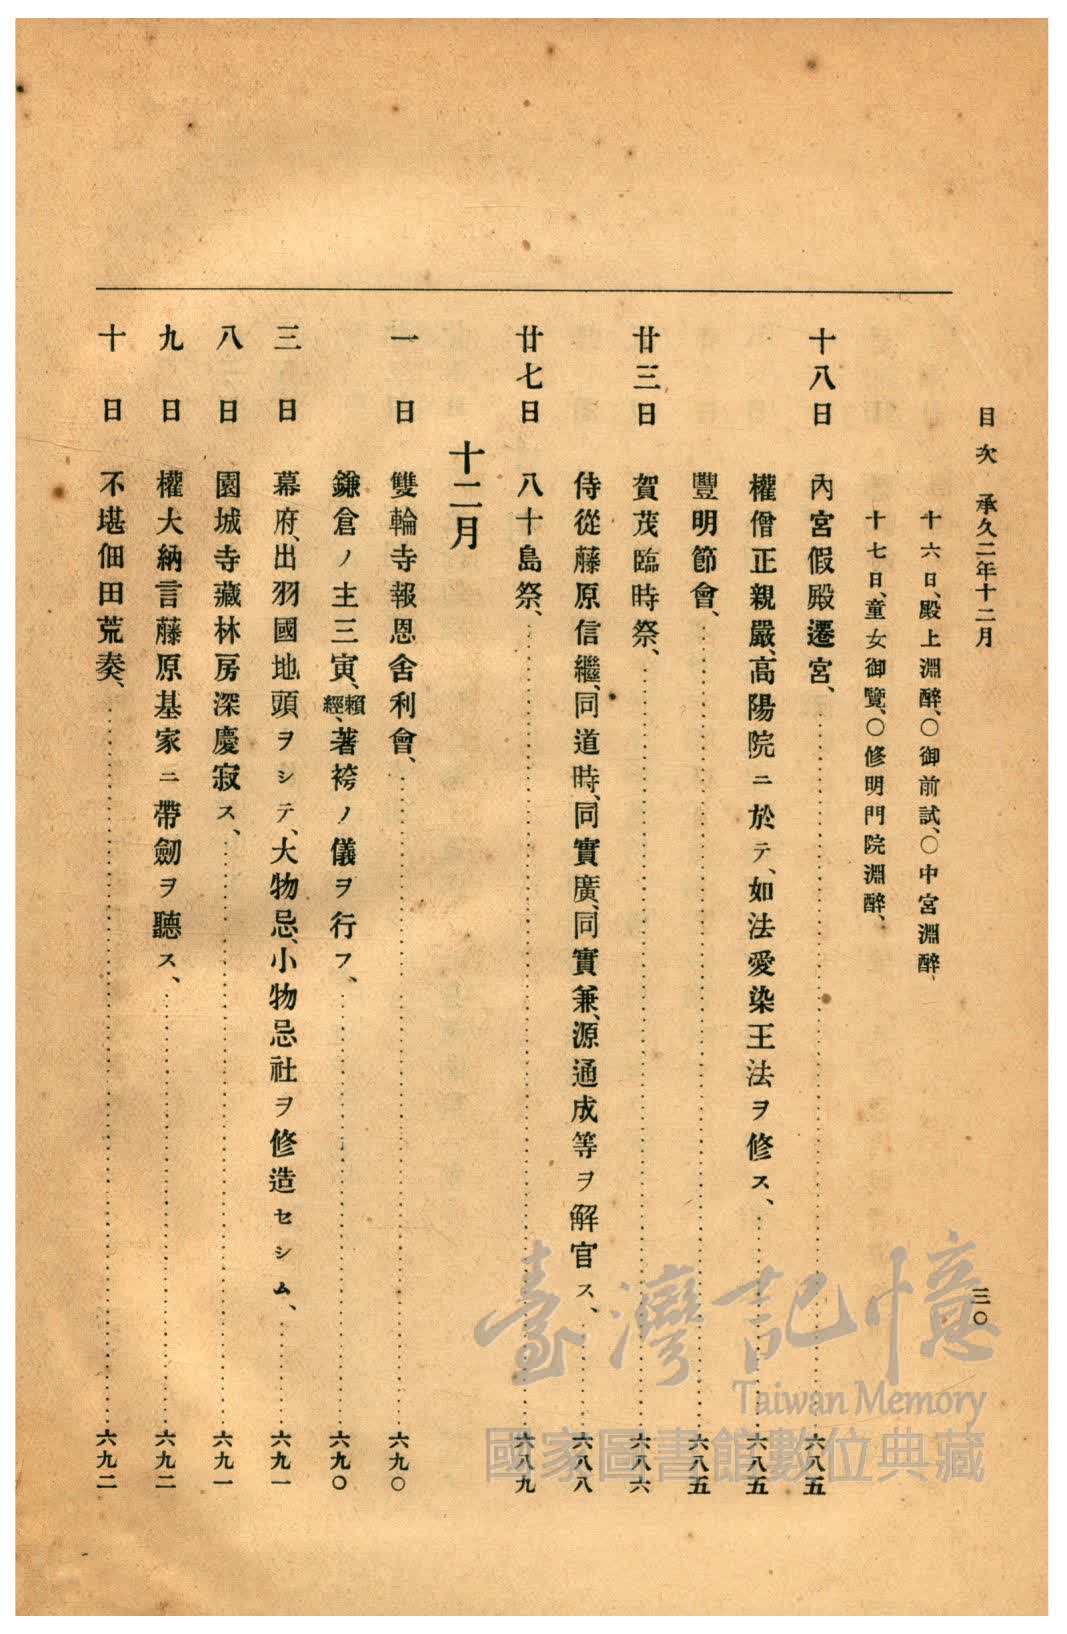 目次　承久二年十二月　三〇
十六日、殿上淵醉、〇御前試、〇中宮淵醉、
十七日、童女御覽、〇修明門院淵醉、
十八日　內宮假殿遷宮、……六八五
權僧正親嚴、高陽院ニ於テ、如法愛染王法ヲ修ス、……六八五
豐明節會、……六八五
廿三日　賀茂臨時祭、……六八六
侍從藤原信繼、同道時、同實廣、同實兼、源通成等ヲ解官ス、……六八八
廿七日　八十島祭、……六八九
十二月
一日　雙輪寺報恩舍利會、……六九〇
鎌倉ノ主三寅、賴經、著袴ノ儀ヲ行フ、……六九〇
三日　幕府、出羽國地頭ヲシテ、大物忌、小物忌社ヲ修造セシム、……六九一
八日　園城寺藏林房深慶寂ス、……六九一
九日　權大納言藤原基家ニ帶劒ヲ聽ス、……六九二
十日　不堪佃田荒奏、……六九二
臺灣記憶
Taiwan Memory
國家圖書館數位典藏